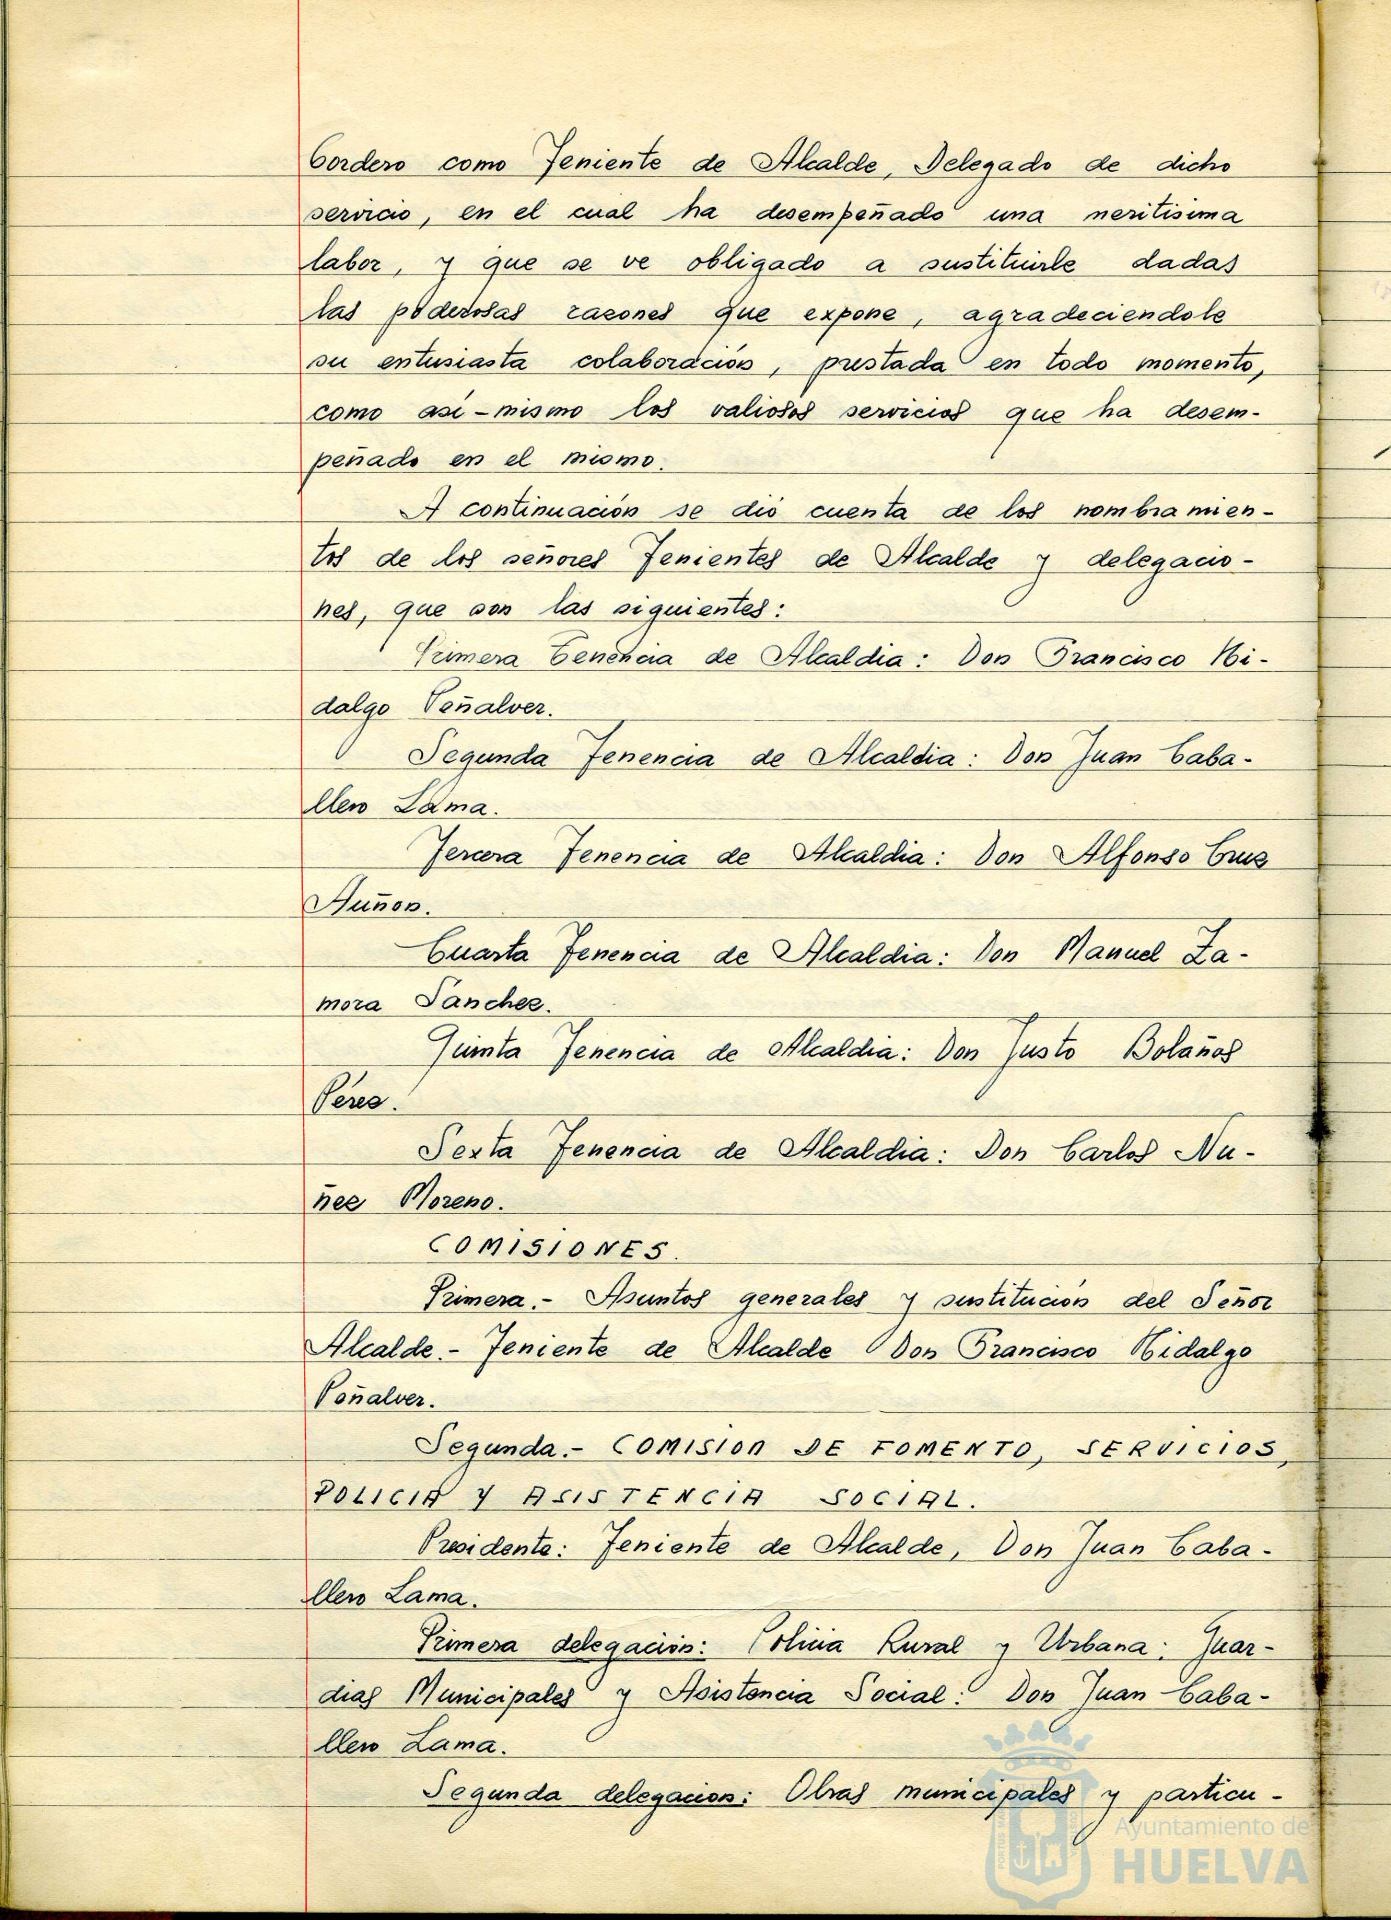 Cordero como Teniente de Alcalde, Delegado de dicho
servicio, en el cual ha desempeñado una meritisima
labor, y que se ve obligado a sustituirle dadas
las poderosas razones que expone, agradeciendole
su entusiasta colaboración, prestada en todo momento,
como asi-mismo los valiosos servicios que ha desem-
peñado en el mismo.
A continuación se dió cuenta de los nombramien-
tos de los señores Tenientes de Alcalde y delegacio-
nes, que son las siguientes:
Primera Tenencia de Alcaldia: Don Francisco Hi-
dalgo Peñalver.
Segunda Tenencia de Alcaldia: Don Juan Caba-
llero Lama.
Tercera Tenencia de Alcaldia: Don Alfonso Cruz
Auñon.
Cuarta Tenencia de Alcaldia: Don Manuel Za-
mora Sanchez.
Quinta Tenencia de Alcaldia: Don Justo Bolaños
Pérez.
Sexta Tenencia de Alcaldia: Don Carlos Nu-
ñez Moreno.
COMISIONES.
Primera.- Asuntos generales y sustitución del Señor
Alcalde.- Teniente de Alcalde Don Francisco Hidalgo
Peñalver.
Segunda.- COMISION DE FOMENTO, SERVICIOS,
POLICIA Y ASISTENCIA SOCIAL.
Presidente: Teniente de Alcalde, Don Juan Caba-
llero Lama.
Primera delegación: Policia Rural y Urbana: Guar-
dias Municipales y Asistencia Social: Don Juan Caba-
llero Lama.
Segunda delegacion: Obras municipales y particu-
Ayuntamiento de
HUELVA